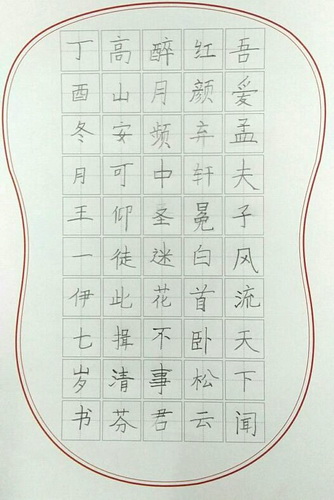 吾爱孟夫子风流天下闻
红颜弃轩冕白首卧松云
醉月频中圣迷花不事君
高山安可仰徒此揖清芬
丁酉冬月王一伊七岁书